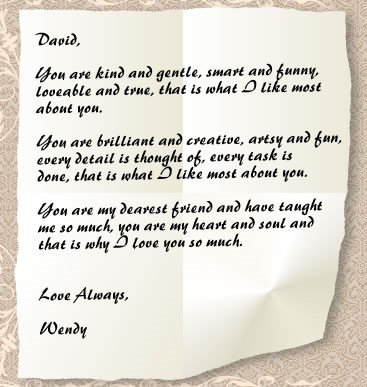 David,
You are kind and gentle, smart and funny,
loveable and true, that is what I like most
about you.
You are brilliant and creative, artsy and fun,
every detail is thought of, every task is
done, that is what I like most about you.
You are my dearest friend and have taught
me so much, you are my heart and soul and
that is why I love you so much.
Love Always,
Wendy